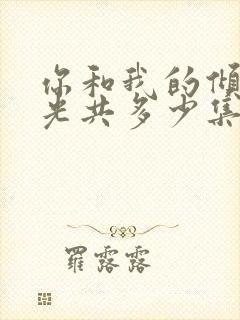 你和我的倾
光共多少集
羅露露